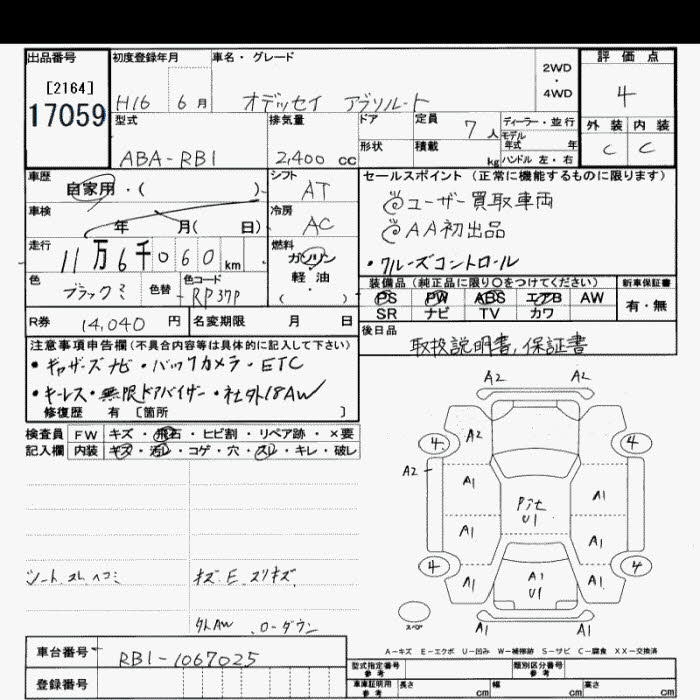 出品番号 初度登録年月 車名・グレード 評価点
[2164] 2WD・4WD
17059 H16 6月 オデッセイ アブソルート 4
型式 排気量 ドア 定員 7人 ディーラー・並行 外装 内装
モデル年式 年
ABA-RB1 2,400 cc 形状 積載 kg ハンドル 左・右 C C
車歴 シフト セールスポイント (正常に機能するものに限ります)
自家用・( ) AT ◎ユーザー買取車両
車検 冷房 ◎AA初出品
年 月( 日) AC
走行 燃料 ・クルーズコントロール
11万6千060km ガソリン
軽・油
( )
色 色替 色コード 装備品 (純正品に限り○をつけてください) 新車保証書
ブラックミ RP37P PS PW ABS エアB AW 有・無
SR ナビ TV カワ
R券 14,040 円 名変期限 月 日 後日品
取扱説明書, 保証書
注意事項申告欄(不具合内容等は具体的に記入して下さい)
・ギャザーズナビ・バックカメラ・ETC
・キーレス・無限ドアバイザー・社外18AW
修復歴 有 [箇所 ]
検査員 FW キズ・飛石・ヒビ割・リペア跡・×要
記入欄 内装 キズ・汚レ・コゲ・穴・スレ・キレ・破レ
シート スレ ヘコミ キズ E スリキズ
外AW ローダウン
A2 A2
4 A2 4
A2 A1 A1
P区 U1
A1 A1
4 A1 A1 U1 A1 4
スペア A1 A1
A-キズ E-エクボ U-凹み W-補修跡 S-サビ C-腐食 XX-交換済
車台番号 RB1-1067025
登録番号
型式指定番号 参考 類別区分番号 参考
車庫証明用 参考 長さ cm 幅 cm 高さ cm